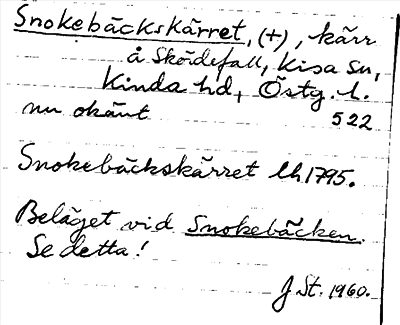 Snokebäckskärret, (+), kärr
å Skördefall, Kisa sn,
Kinda hd, Östg. l.
nu okänt 522
Snokebäckskärret lh 1795.
Beläget vid Snokebäcken.
Se detta!
J St. 1960.